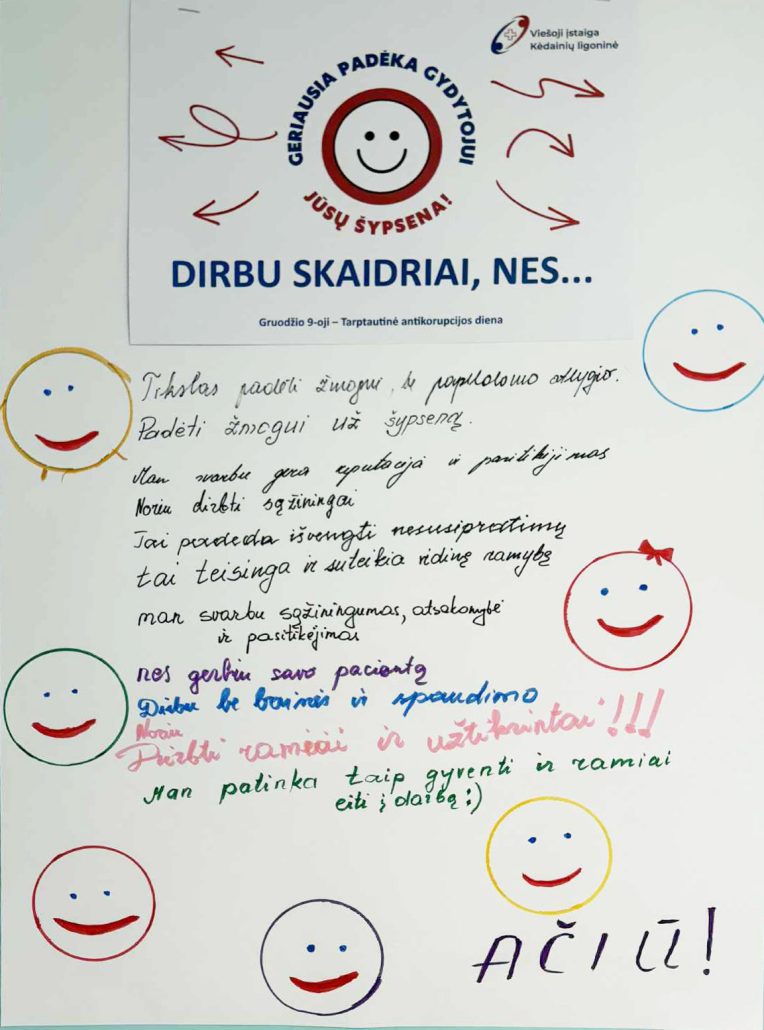 Viešoji įstaiga
Kėdainių ligoninė
GERIAUSIA PADĖKA GYDYTOJUI
JŪSŲ ŠYPSENA!
DIRBU SKAIDRIAI, NES...
Gruodžio 9-oji – Tarptautinė antikorupcijos diena
Tikslas padėti žmogui, be papildomo atlygio.
Padėti žmogui už šypseną.
Man svarbu gera reputacija ir pasitikėjimas
Noriu dirbti sąžiningai
Tai padeda išvengti nesusipratimų
tai teisinga ir suteikia vidinę ramybę
man svarbu sąžiningumas, atsakomybė
ir pasitikėjimas
nes gerbiu savo pacientą
Dirbu be baimės ir spaudimo
Noriu
Dirbti ramiai ir užtikrintai!!!
Man patinka taip gyventi ir ramiai
eiti į darbą :)
AČIŪ!